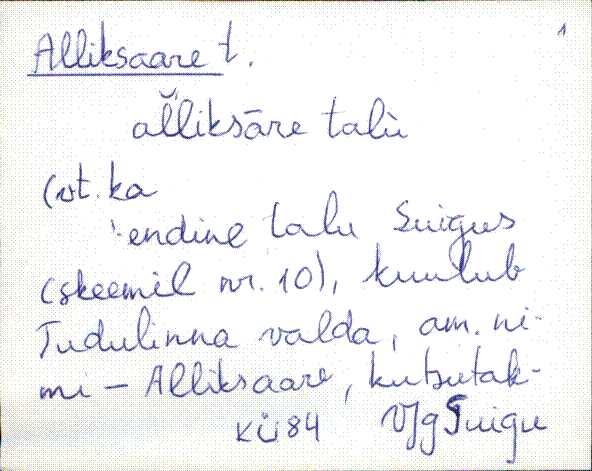 1
Alliksaare t.
al̆liksāre talù
(vt. ka
endine talu Suigus
(skeemil nr. 10), kuulub
Tudulinna valda, am. ni-
mi – Alliksaare, kutsutak-
KÜ84 VJg Tuigu